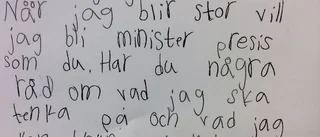 När jag blir stor vill
jag bli minister presis
som du. Har du några
råd om vad jag ska
tenka på och vad jag